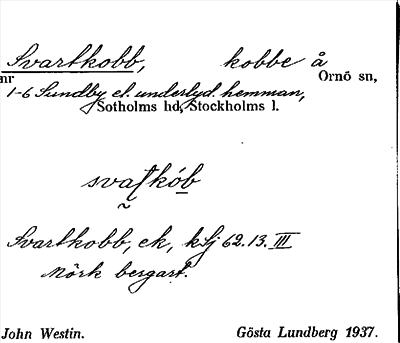 Svartkobb, kobbe å
nr Ornö sn,
1-6 Sundby el. underlyd. hemman,
Sotholms hd, Stockholms l.
svaʃkób
Svartkobb, ek, kSj 62.13. III
Mörk bergart.
John Westin. Gösta Lundberg 1937.